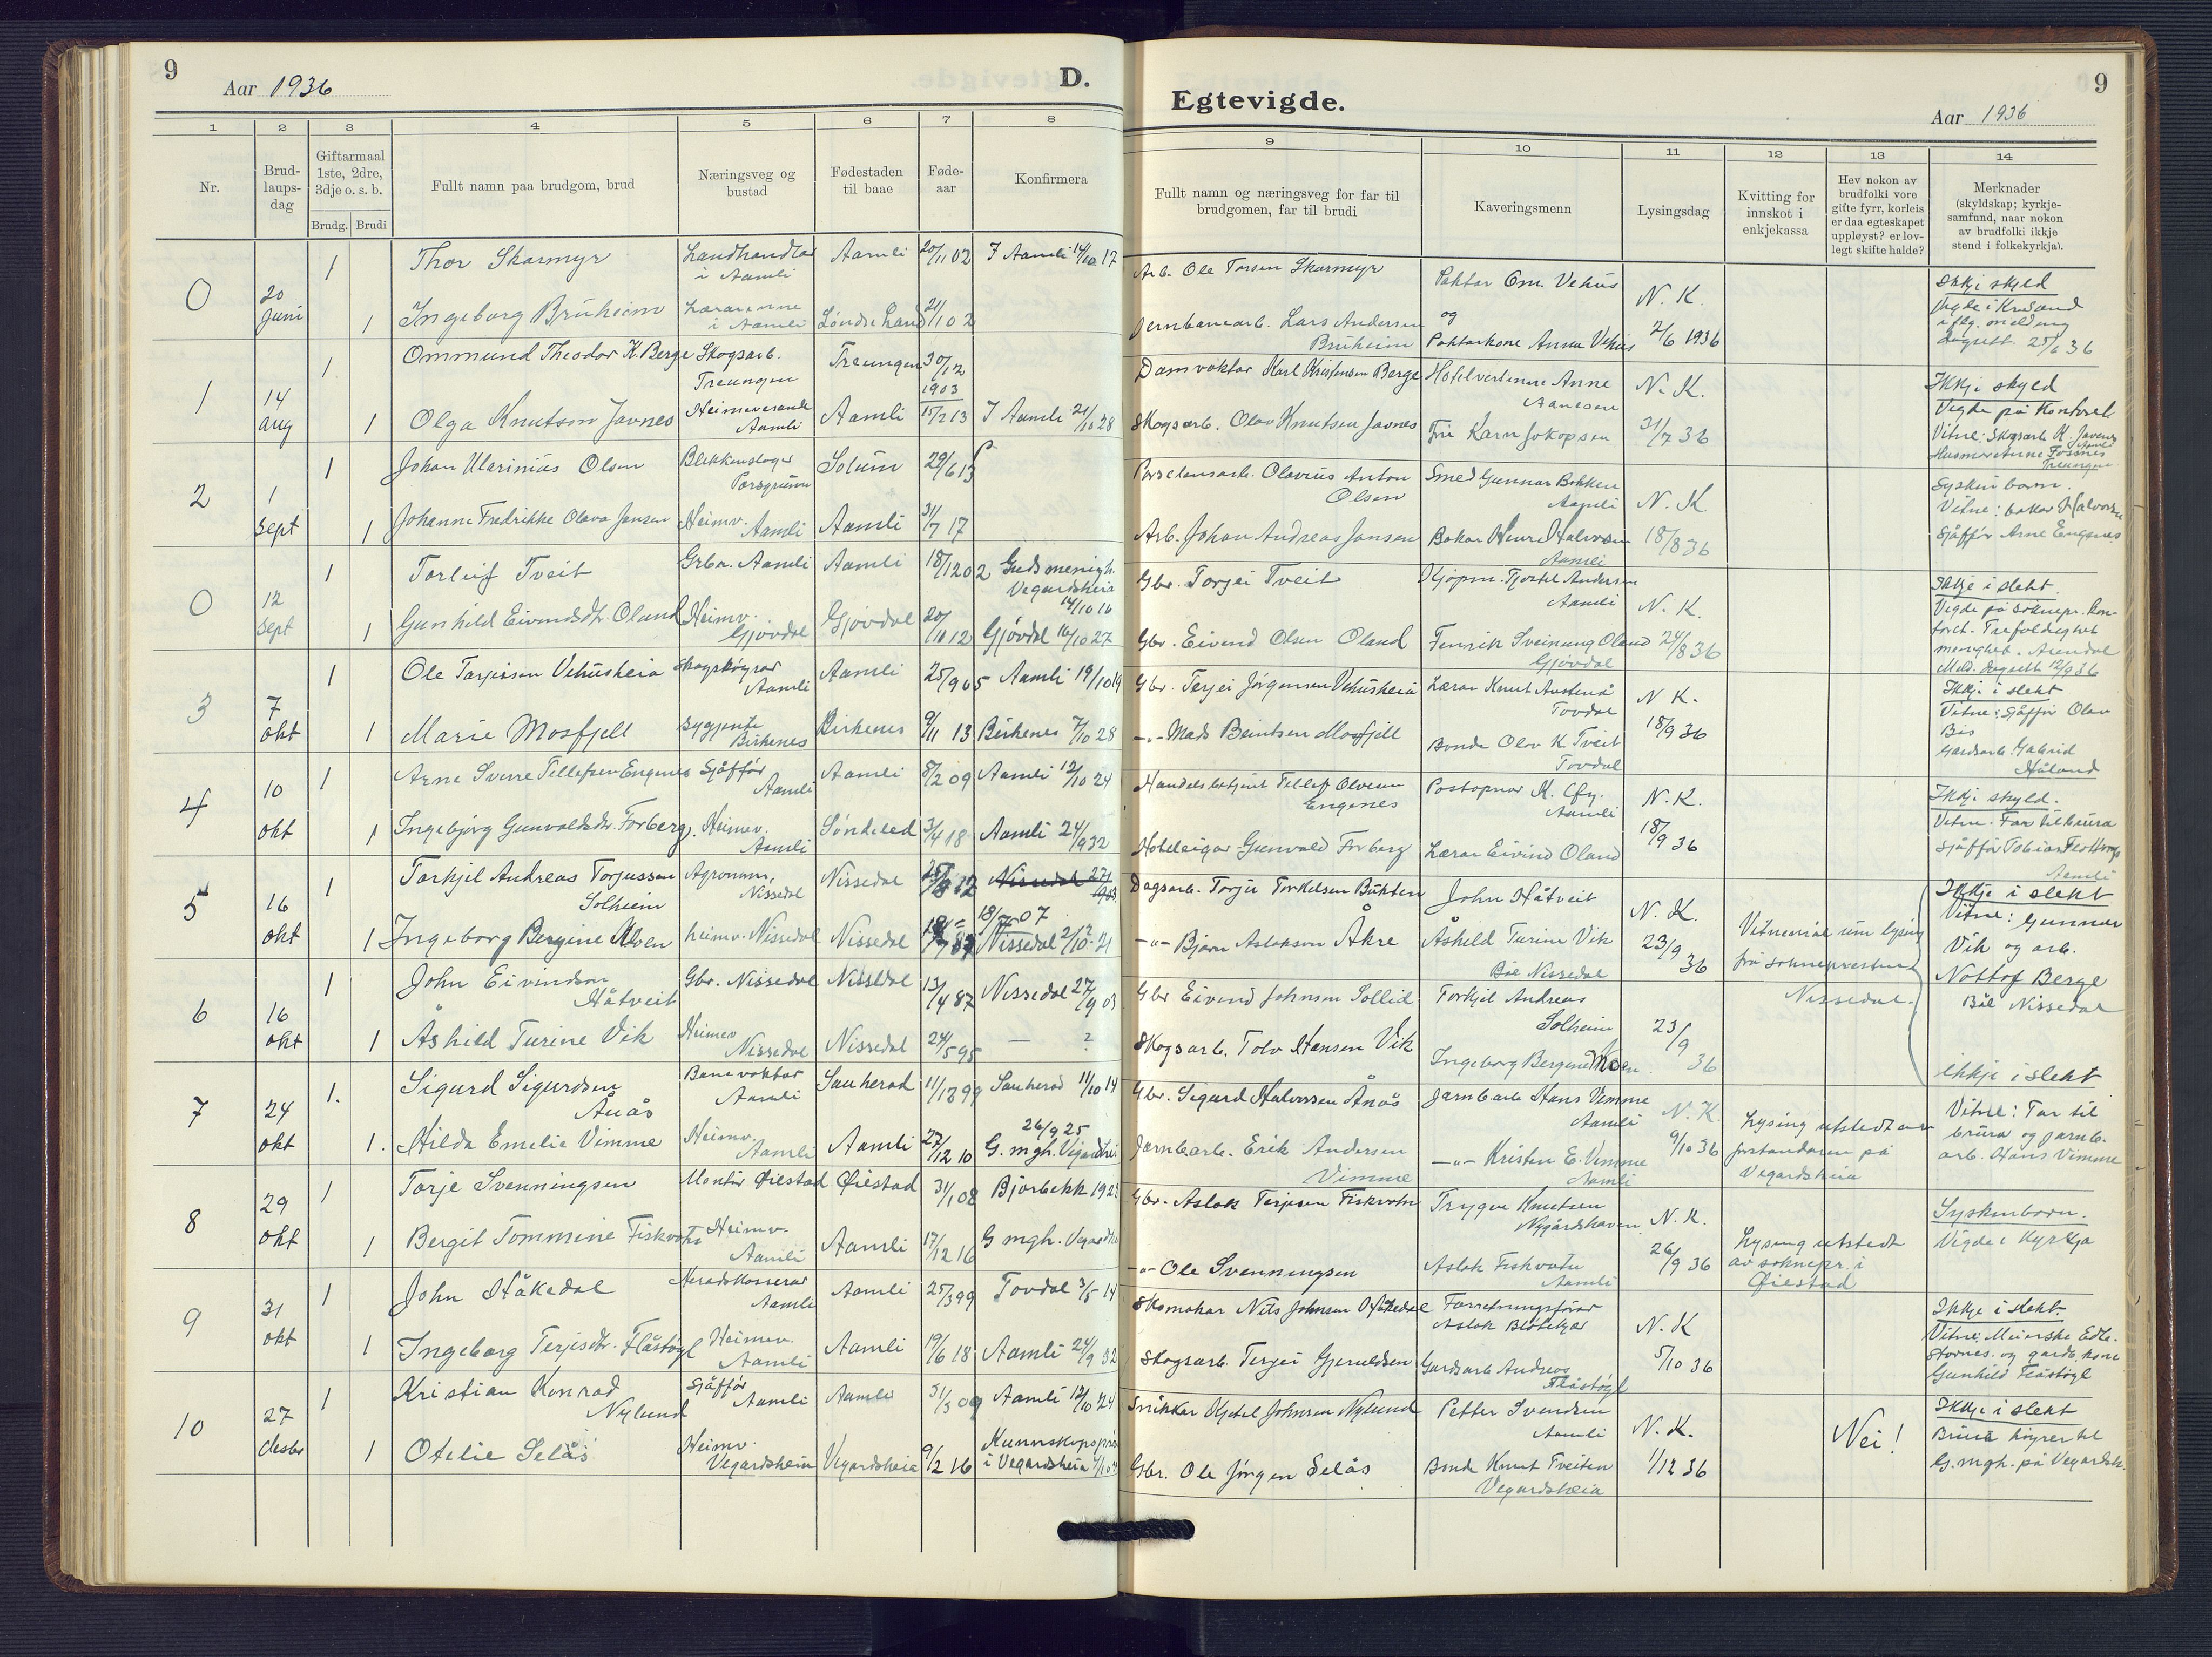 9
Aar 1936
D.
1 2 3 4 5 6 7 8
Nr.
Brud-
laups-
dag
Giftarmaal
1ste, 2dre,
3dje o. s. b.
Brudg. Brudi
Fullt namn paa brudgom, brud
Næringsveg og
bustad
Fødestaden
til baae
Føde-
aar
Konfirmera
0
20
Juni
1
Thor Skarmyr
Landhandlar
i Aamli
Aamli
20/11 02
I Aamli 14/10 17
1
Ingeborg Brüheim
Lærarinne
i Aamli
21/1 02
1
14
aug
1
Ommund Theodor K. Berge
Skogsarb.
Treungen
Treungen
30/12
1903
1
Olga Knutson Javnes
Heimeverande
Aamli
Aamli
15/2 13
I Aamli 21/10 28
2
1
sept
1
Johan Ularinius Olsen
Blekkenslager
Porsgrunn
Solum
29/6 13
1
Johanne Fredrikke Olava Jansen
Heimv.
Aamli
Aamli
31/7 17
0
12
sept
1
Torleif Tveit
Grbr. Aamli
Aamli
18/12 02
Guds menigh.
Vegardsheia
14/10 16
1
Gunhild Eivindsdtr. Oland
Heimv.
Gjövdal
Gjövdal
20/11 12
Gjövdal 16/10 27
3
7
okt
1
Ole Tarjeisen Vehusheia
Skogshögrar
Aamli
Aamli
25/9 05
Aamli 19/10 19
1
Marie Mosfjell
Sygjente
Birkenes
Birkenes
9/11 13
Birkenes 7/10 28
4
10
okt
1
Arne Sverre Tellefsen Engenes
Sjåffór
Aamli
Aamli
8/2 09
Aamli 12/10 24
1
Ingebjörg Gunvaldsdtr. Forberg.
Heimev.
Aamli
Søndeled
3/4 18
Aamli 24/9 32
5
16
okt
1
Torkjel Andreas Torjussen
Solheim
Agronom,
Nissedal
Nissedal
Nissedal 27/
18/ 07
1
Ingeborg Bergine
heimv. Nissedal
Nissedal
Nissedal 2/10 21
6
16
okt
1
John Eivindson
Håtveit
Gbr. Nissedal
Nissedal
13/4 87
Nissedal 27/9 03
1
Åshild Turine Vik
Heimev
Nissedal
Nissedal
24/5 95
— ?
7
24
okt
1.
Sigurd Sigurdsen
Ånås
Banevaktar
Aamli
Sauherad
11/12 99
Sauherad 11/10 14
1.
Hilda Emelie Vimme
Heimv.
Aamli
Aamli
27/12 10
26/9 25
G. mgh. Vegardshei
8
29
okt
1
Torje Svenningsen
Montør Øiestad
Øiestad
31/1 08
Bjorbekk 1923
1
Bergit Tommine Fiskvatn
Heimv.
Aamli
Aamli
17/12 16
G mgh. Vegardsh.
9
31
okt
1
John Håkedal
Heradskasserar
Aamli
Aamli
25/3 99
Tovdal 3/5 14
1
Ingeborg Terjesdtr. Flåstöyl
Heimev.
Aamli
Aamli
19/6 18
Aamli 24/9 32
10
27
desbr
1
Kristian Konrad
Nylund
Sjåffór
Aamli
Aamli
31/3 09
Aamli 12/10 24
1
Otelie Selås
Heimv.
Vegardsheia
Vegardsheia
9/2 16
i Vegardsheia
Egtevigde.
9
Aar 1936
9 10 11 12 13 14
Fullt namn og næringsveg for far til
brudgomen, far til brudi
Kaveringsmenn
Lysingsdag
Kvitting for
innskot i
enkjekassa
Hev nokon av
brudfolki vore
gifte fyrr, korleis
er daa egteskapet
uppløyst? er lov-
legt skifte halde?
Merknader
(skyldskap; kyrkje-
samfund, naar nokon
av brudfolki ikkje
stend i folkekyrkja).
Arb. Ole Torsen Skarmyr
Poktar Om. Vehus
N. K.
Ikkje skyld
Jernbanearb. Lars Andersen
Brüheim
og
Poktarkone Anna Vehus
2/6 1936
Vigde i Krsand
iflg. melding
dagsett 25/6 36
Damvaktar Karl Kristensen Berge
Hotelvertinne Anne
Aanesen
N. K.
Ikkje skyld
Vigde på Kontoret
Skogsarb. Olav Knutsen Javnes
Fru Karn Jokopsen
31/7 36
Vitne: Skogsarb K. Javnes
Aamli
Husmor Anne Fossnes
Treungen
Porselensarb. Olavius Anton
Olsen
Smed Gunnar Bakken
Aamli
N. K.
Syskinbarn.
Vitne: bakar Halvorsen
Arb. Johan Andreas Jansen
Bakar Henry Halvorsen
Aamli
18/8 36
Sjåffór Arne Engenes
Gbr. Torjei Tveit
Kjøpm. Tjostel Andersen
Aamli
N. K.
Ikkje i slekt.
Vigde på soknepr. kon-
toret. Trefoldighet
Gbr. Eivind Olsen Oland
Fenrik Sveinung Oland
Gjövdal
24/8 36
menighet. Arendal
Meld. dagsett 12/9 36
Gbr. Terjei Jörgensen Vehusheia
Lærar Knut Austenå
Tovdal
N K.
Ikkje i slekt
Vitne: Sjåffór Olav
Bås
-"- Mads Beintsen Mosfjell
Bonde Olav K Tveit
Tovdal
18/9 36
Gardsarb. Gabriel
Håland
Handelsbetjent Tellef Olsen
Engenes
Postopnar K. Cfy.
Aamli
N. K.
Ikkje skyld.
Vitne. Far til brura
Hoteleigar Gunvald Forberg
Lærar Eivind Oland
18/9 36
sjåffór Tobias
Aamli
Dagsarb. Torju Torkelsen Bukten
John Håtveit
N. K.
Ikkje i slekt
Vitne: Gunnar
Vik og arb.
Nottof Berge
Bøl Nissedal
-"- Bjørn Aslakson Åkre
Åshild Turine Vik
Bøl Nissedal
23/9
36
Vitnemål um lysing
frå soknepresten i
Nissedal.
Gbr Eivind Johnsen Sollid
Torkjil Andreas
Solheim
23/9
36
Skogsarb. Tolv Hansen Vik
Ingeborg Bergine Moen
ikkje i slekt
Gbr. Sigurd Halvorsen Ånås
Jarnbarb Hans Vimme
Aamli
N. K
Vitne: Far til
brura og jarnb.
arb. Hans Vimme
Jarnbarb. Erik Andersen
Vimme
-"- Kristen E. Vimme
Aamli
9/10 36
Lysing utstedt av
forstandaren på
Vegardsheia
Gbr. Aslak Terjesen Fiskvatn
Trygve Knutsen
Nygårdshaven
N. K.
Syskenborn.
Vigde i Kyrkja
-"- Ole Svenningsen
Aslak Fiskvatn
Aamli
26/9 36
Lysing utstedt
av soknepr. i
Øiestad
Skomakar Nils Johnsen Håkedal
Forretningsförar
Aslak Blötekjær
N. K
Ikkje i slekt.
Skogsarb. Terjei Gjeruldsen
Gardsarb Andreas
Flåstöyl
5/10 36
Gunhild Flåstöyl
Snikkar Kjetel Johnsen Nylund
Petter Svendsen
Aamli
N. K.
Nei!
Ikkje i slekt
Brura höyrer til
G. mgh. på Vegardsh.
Gbr. Ole Jörgen Selås
Bonde Knut Tveiten
Vegardsheia
1/12 36